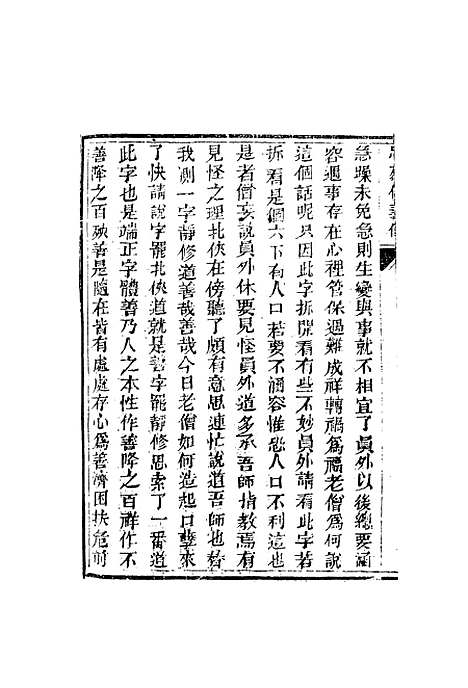 急躁未免急則生變與事就不相宜了員外以後總要涵
容遇事存在心裡管保遇難成祥轉禍爲福老僧爲何說
這個話呢只因此字拆開看有些不妙員外請看此字若
拆看是個六下有人口若要不涵容惟恐人口不利這也
是老僧妄說員外休要見怪員外道多承吾師指教焉有
見怪之理北俠在傍聽了頗有意思連忙說道吾師也替
我測一字靜修道善哉善哉今日老僧如何造起口孽來
了快請說字罷北俠道就是善字罷靜修思索了一番道
此字也是端正字體善乃人之本性作善降之百祥作不
善降之百殃善是隨在皆有處處存心爲善濟困扶危前